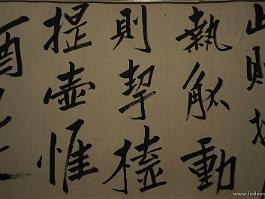 止則
執觚動
則挈榼
提壺惟
酒